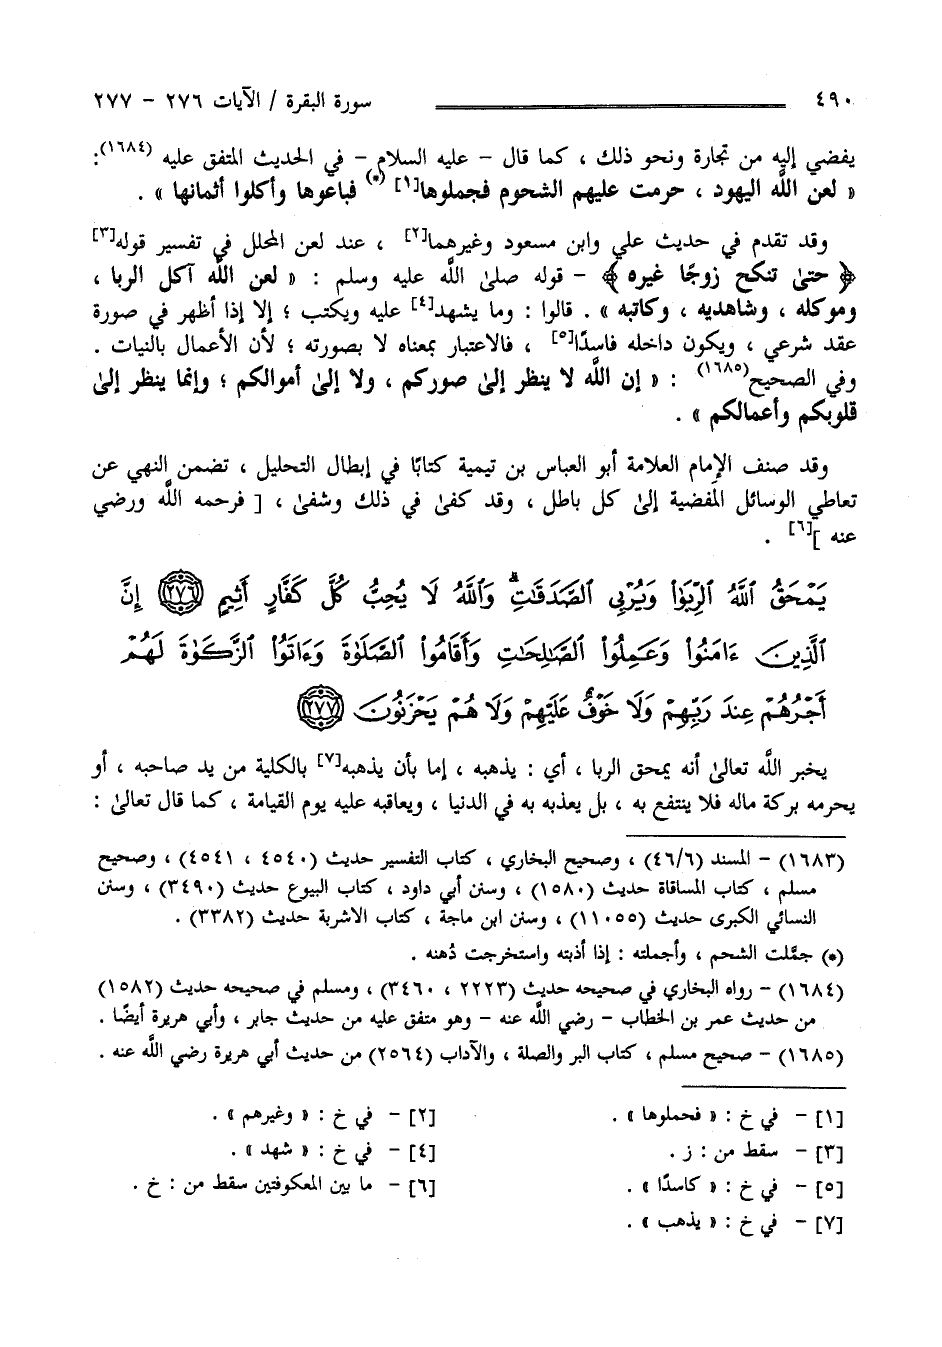 ٤٩٠ سورة البقرة / الآيات ٢٧٦ - ٢٧٧
يفضي إليه من تجارة ونحو ذلك ، كما قال - عليه السلام - في الحديث المتفق عليه (١٦٨٤):
« لعن الله اليهود ، حرمت عليهم الشحوم فجملوها[١] (*) فباعوها وأكلوا أثمانها » .
وقد تقدم في حديث علي وابن مسعود وغيرهما[٢] ، عند لعن المحلل في تفسير قوله[٣]
﴿ حتىٰ تنكح زوجًا غيره ﴾ - قوله صلىٰ الله عليه وسلم : « لعن الله آكل الربا ،
وموكله ، وشاهديه ، وكاتبه » . قالوا : وما يشهد[٤] عليه ويكتب ؛ إلا إذا أظهر في صورة
عقد شرعي ، ويكون داخله فاسدًا[٥] ، فالاعتبار بمعناه لا بصورته ؛ لأن الأعمال بالنيات .
وفي الصحيح(١٦٨٥) : « إن الله لا ينظر إلىٰ صوركم ، ولا إلىٰ أموالكم ؛ وإنما ينظر إلىٰ
قلوبكم وأعمالكم » .
وقد صنف الإمام العلامة أبو العباس بن تيمية كتابًا في إبطال التحليل ، تضمن النهي عن
تعاطي الوسائل المُفضية إلىٰ كل باطل ، وقد كفىٰ في ذلك وشفىٰ ، [ فرحمه الله ورضي
عنه ][٦] .
يَمْحَقُ ٱللَّهُ ٱلرِّبَوٰا۟ وَيُرْبِى ٱلصَّدَقَـٰتِ ۗ وَٱللَّهُ لَا يُحِبُّ كُلَّ كَفَّارٍ أَثِيمٍ ٢٧٦ إِنَّ
ٱلَّذِينَ ءَامَنُوا۟ وَعَمِلُوا۟ ٱلصَّـٰلِحَـٰتِ وَأَقَامُوا۟ ٱلصَّلَوٰةَ وَءَاتَوُا۟ ٱلزَّكَوٰةَ لَهُمْ
أَجْرُهُمْ عِندَ رَبِّهِمْ وَلَا خَوْفٌ عَلَيْهِمْ وَلَا هُمْ يَحْزَنُونَ ٢٧٧
يخبر الله تعالىٰ أنه يمحق الربا ، أي : يذهبه ، إما بأن يذهبه[٧] بالكلية من يد صاحبه ، أو
يحرمه بركة ماله فلا ينتفع به ، بل يعذبه به في الدنيا ، ويعاقبه عليه يوم القيامة ، كما قال تعالىٰ :
(١٦٨٣) - المسند (٤٦/٦) ، وصحيح البخاري ، كتاب التفسير حديث (٤٥٤٠ ، ٤٥٤١) ، وصحيح
مسلم ، كتاب المساقاة حديث (١٥٨٠) ، وسنن أبي داود ، كتاب البيوع حديث (٣٤٩٠) ، وسنن
النسائي الكبرى حديث (١١٠٥٥) ، وسنن ابن ماجة ، كتاب الاشربة حديث (٣٣٨٢) .
(*) جمَّلت الشحم ، وأجملته : إذا أذبته واستخرجت دُهنه .
(١٦٨٤) - رواه البخاري في صحيحه حديث (٢٢٢٣ ، ٣٤٦٠) ، ومسلم في صحيحه حديث (١٥٨٢)
من حديث عمر بن الخطاب - رضي الله عنه - وهو متفق عليه من حديث جابر ، وأبي هريرة أيضًا .
(١٦٨٥) - صحيح مسلم ، كتاب البر والصلة ، والآداب (٢٥٦٤) من حديث أبي هريرة رضي الله عنه .
[١] - في خ : « فحملوها » . [٢] - في خ : « وغيرهم » .
[٣] - سقط من : ز . [٤] - في خ : « شهد » .
[٥] - في خ : « كاسدًا » . [٦] - ما بين المعكوفتين سقط من : خ .
[٧] - في خ : « يذهب » .